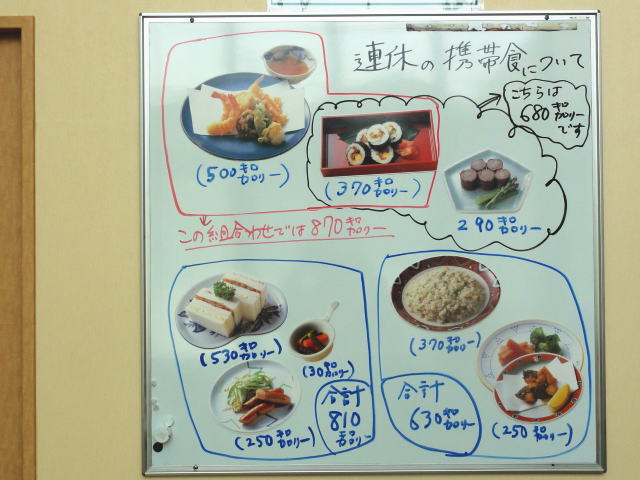 連休の携帯食について
こちらは
680キロカロリー
です
(500キロカロリー)
(370キロカロリー)
290キロカロリー
この組合わせでは870キロカロリー
(530キロカロリー)
(30キロカロリー)
(250キロカロリー)
合計
810
キロカロリー
(370キロカロリー)
合計
630キロカロリー
(250キロカロリー)